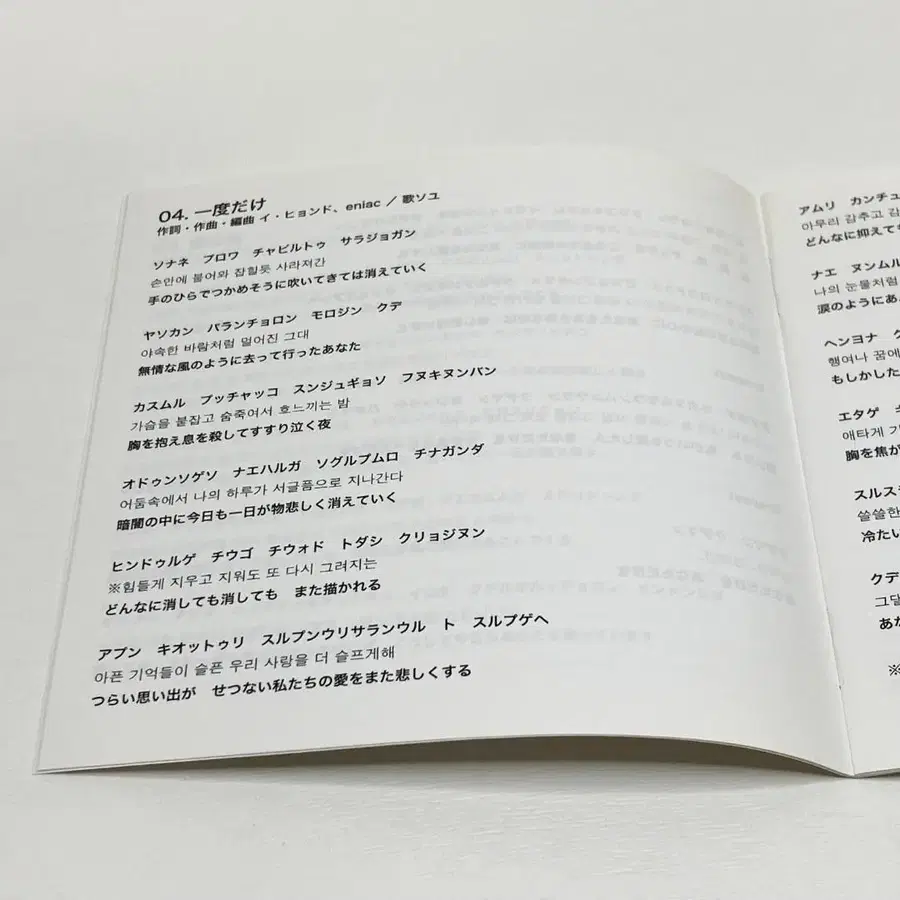 04. 一度だけ
作詞・作曲・編曲 イ・ヒョンド、eniac / 歌ソユ
ソナネ プロワ チャピルトゥ サラジョガン
손안에 불어와 잡힐듯 사라져간
手のひらでつかめそうに吹いてきては消えていく
ヤソカン パランチョロン モロジン クデ
야속한 바람처럼 멀어진 그대
無情な風のように去って行ったあなた
カスムル プッチャッコ スンジュギョソ フヌキヌンバン
가슴을 붙잡고 숨죽여서 흐느끼는 밤
胸を抱え息を殺してすすり泣く夜
オドゥンソゲソ ナエハルガ ソグルプムロ チナガンダ
어둠속에서 나의 하루가 서글픔으로 지나간다
暗闇の中に今日も一日が物悲しく消えていく
ヒンドゥルゲ チウゴ チウォド トダシ クリョジヌン
※힘들게 지우고 지워도 또 다시 그려지는
どんなに消しても消しても また描かれる
アプン キオットゥリ スルプンウリサランウル ト スルプゲヘ
아픈 기억들이 슬픈 우리 사랑을 더 슬프게해
つらい思い出が せつない私たちの愛をまた悲しくする
アムリ カンチュ
아무리 감추고 감
どんなに抑えても
ナエ ヌンムル
나의 눈물처럼
涙のようにあ
ヘンヨナ
행여나 꿈에
もしかした
エタゲ
애타게
胸を焦が
スルス
쓸쓸한
冷たい
クデ
그대
あな
※